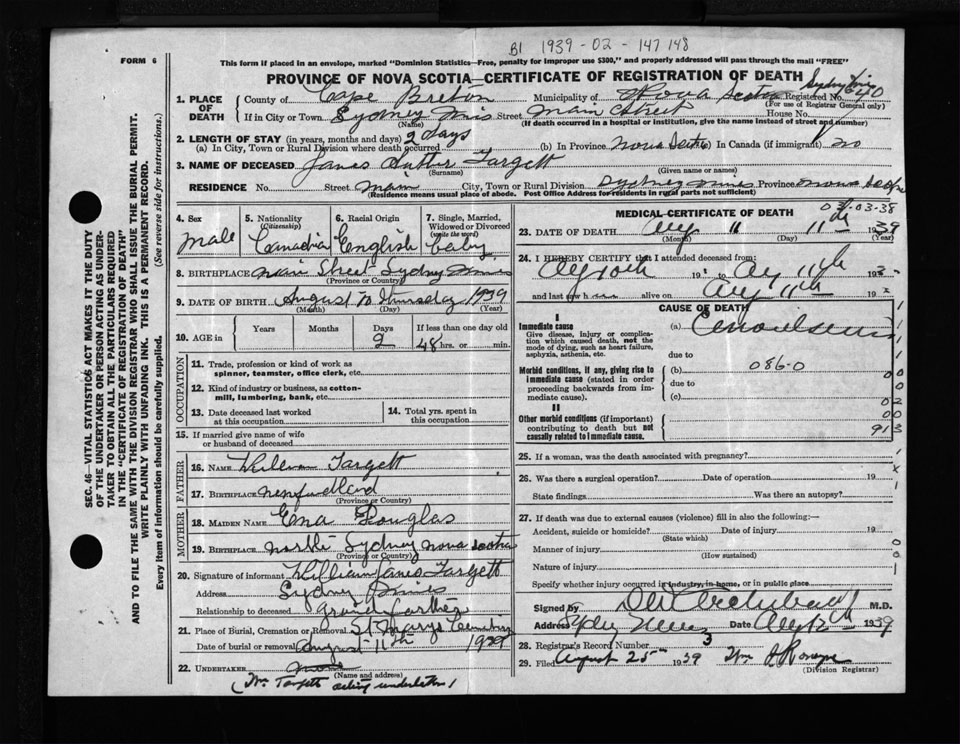 B1 1939-02-147148
FORM 6
This form if placed in an envelope, marked "Dominion Statistics—Free, penalty for improper use $300," and properly addressed will pass through the mail "FREE"
PROVINCE OF NOVA SCOTIA—CERTIFICATE OF REGISTRATION OF DEATH
1. PLACE OF DEATH
County of Cape Breton Municipality of Nova Scotia Registered No. 640
(For use of Registrar General only)
If in City or Town Sydney Mines Street Main Street House No.
(Name) (If death occurred in a hospital or institution, give the name instead of street and number)
2. LENGTH OF STAY (in years, months and days) 2 days
(a) In City, Town or Rural Division where death occurred (b) In Province Nova Scotia In Canada (if immigrant) no
3. NAME OF DECEASED James Targett
(Surname) (Given name or names)
RESIDENCE No. Street Main City, Town or Rural Division Sydney Mines Province Nova Scotia
(Residence means usual place of abode. Post Office Address for residents in rural parts not sufficient)
4. Sex
Male
5. Nationality
(Citizenship)
6. Racial Origin
English
7. Single, Married, Widowed or Divorced
(write the word)
baby
8. BIRTHPLACE Main Street Sydney Mines
(Province or Country)
9. DATE OF BIRTH August 10 Thursday 1939
(Month) (Day) (Year)
10. AGE in
Years
Months
Days
2
If less than one day old
48 hrs. or min.
OCCUPATION
11. Trade, profession or kind of work as spinner, teamster, office clerk, etc.
12. Kind of industry or business, as cotton-mill, lumbering, bank, etc.
13. Date deceased last worked at this occupation
14. Total yrs. spent in this occupation
15. If married give name of wife or husband of deceased
FATHER
16. NAME William Targett
17. BIRTHPLACE
(Province or Country)
MOTHER
18. MAIDEN NAME Ena Douglas
19. BIRTHPLACE North Sydney Nova Scotia
(Province or Country)
20. Signature of informant William James Targett
Address Sydney Mines
Relationship to deceased Grand Father
21. Place of Burial, Cremation or Removal St Marys Cemetery
Date of burial or removal August 11th 1939
22. UNDERTAKER none
(Name and address)
(Wm Targett acting undertaker)
MEDICAL CERTIFICATE OF DEATH
03-03-38
23. DATE OF DEATH Aug 11th 1939
(Month) (Day) (Year)
24. I HEREBY CERTIFY that I attended deceased from:
Aug 10th 19 to Aug 11th 193
and last saw h alive on Aug 11th 19
CAUSE OF DEATH
I
Immediate cause
Give disease, injury or complication which caused death, not the mode of dying, such as heart failure, asphyxia, asthenia, etc.
(a)
due to
Morbid conditions, if any, giving rise to immediate cause (stated in order proceeding backwards from immediate cause).
(b) 086-0
due to
(c)
II
Other morbid conditions (if important) contributing to death but not causally related to immediate cause.
1
1
1
00
00
02
00
913
25. If a woman, was the death associated with pregnancy?
26. Was there a surgical operation? Date of operation 19
State findings Was there an autopsy?
27. If death was due to external causes (violence) fill in also the following:—
Accident, suicide or homicide? Date of injury 19
(State which)
Manner of injury
(How sustained)
Nature of injury
Specify whether injury occurred in industry, in home, or in public place
Signed by Archibald M.D.
Address Sydney Mines Date Aug 12th 1939
28. Registrar's Record Number 3
29. Filed August 25th 1939 Wm
(Division Registrar)
SEC. 46—VITAL STATISTICS ACT MAKES IT THE DUTY OF THE UNDERTAKER OR PERSON ACTING AS UNDERTAKER TO OBTAIN ALL THE PARTICULARS REQUIRED IN THE "CERTIFICATE OF REGISTRATION OF DEATH"
AND TO FILE THE SAME WITH THE DIVISION REGISTRAR WHO SHALL ISSUE THE BURIAL PERMIT.
WRITE PLAINLY WITH UNFADING INK. THIS IS A PERMANENT RECORD.
Every item of information should be carefully supplied. (See reverse side for instructions.)